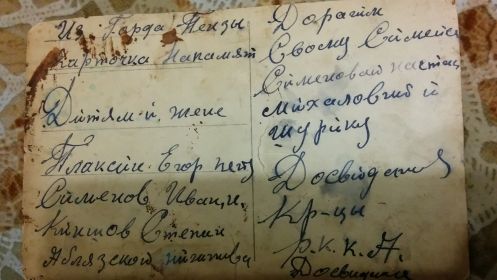 Из Горда Пензы
Карточка Напамят
Дитям и жене
Плаксин Егор петр
Сименов Иван, и.
Китов Степан
Аблязской
Дорагим
Своему Симейст
Сименовай настас
михаловай й
шурику
Досвидения
Кр-цы
Р.К.К.А.
Досвидания